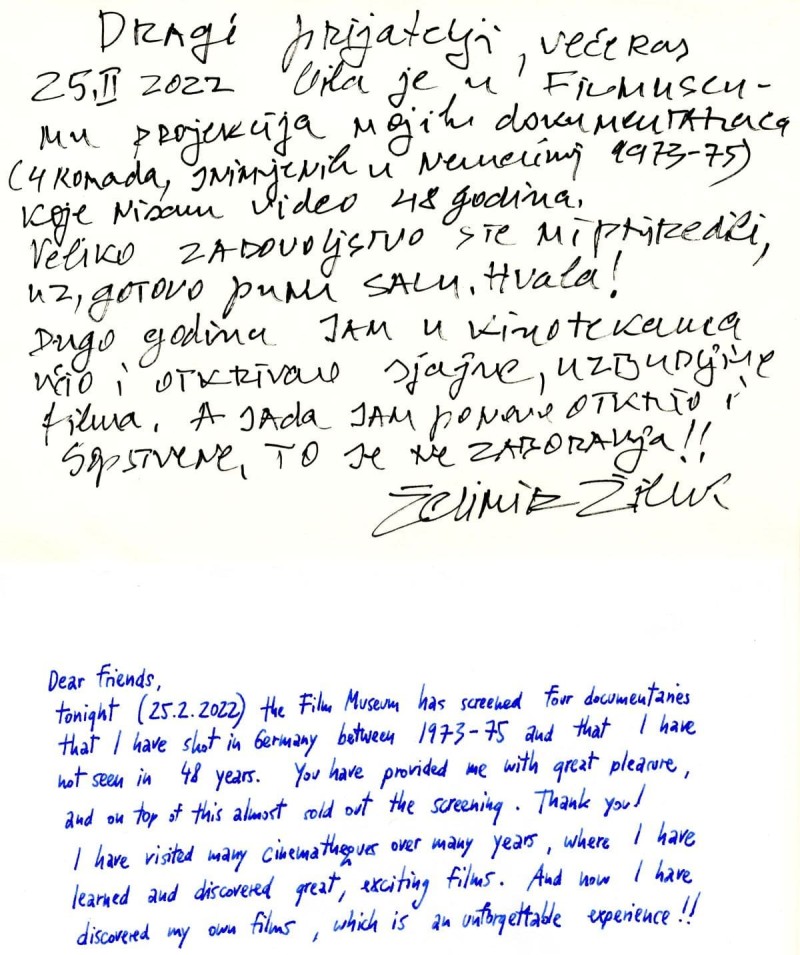 DRAGI prijatelji, večeras
25.II 2022 bila je u Filmuseu-
mu projekcija mojih dokumentaraca
(4 komada, snimljenih u Nemačkoj 1973-75)
koje nisam video 48 godina.
Veliko ZADOVOLJSTVO STE mi priredili,
uz, gotovo punu SALU. Hvala!
Dugo godina SAM u kinotekama
učio i otkrivao sjajne, uzbudljive
filmove. A SADA SAM ponovo otkrio i
sopstvene, TO SE NE ZABORAVLJA!!
Želimir Žilnik
Dear friends,
tonight (25.2.2022) the Film Museum has screened four documentaries
that I have shot in Germany between 1973-75 and that I have
not seen in 48 years. You have provided me with great pleasure,
and on top of this almost sold out the screening. Thank you!
I have visited many cinematheques over many years, where I have
learned and discovered great, exciting films. And now I have
discovered my own films, which is an unforgettable experience!!